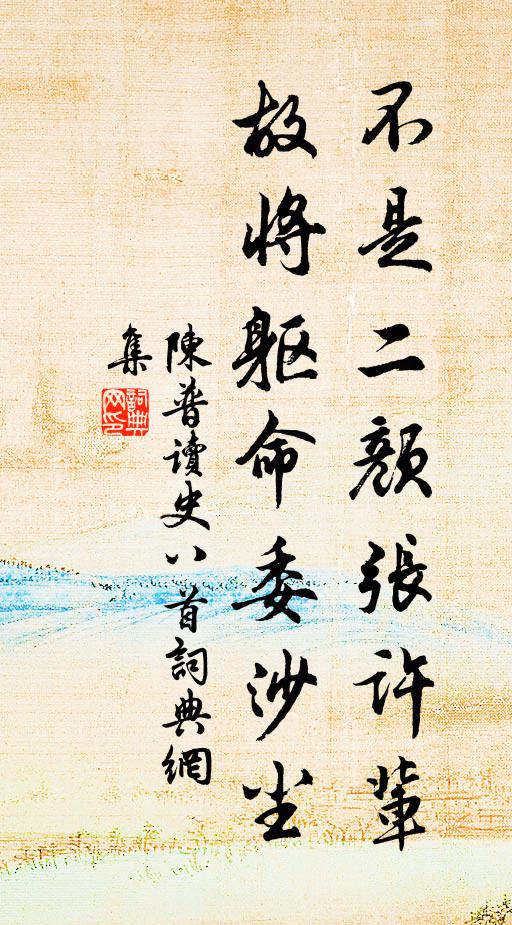 不是二顏張許輩
故將軀命委沙尘
陳普讀史八首詞典網
集
詞典
网印